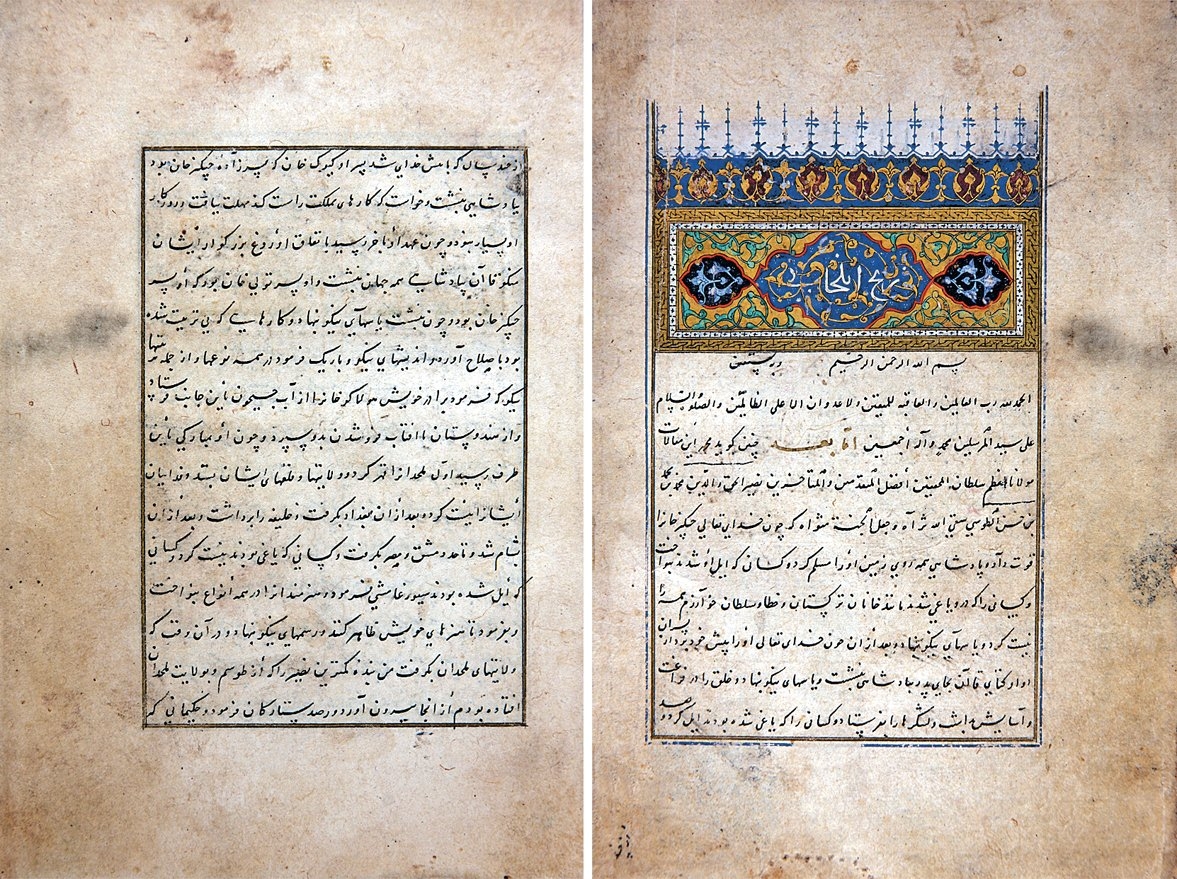 زیج ایلخانی
بسم الله الرحمن الرحیم وبه نستعین
الحمد لله رب العالمین والعاقبه للمتقین ولا عدوان الا علی الظالمین والصلوة والسلام
علی سید المرسلین محمد وآله أجمعین أما بعد چنین کوید این مقالات
مولانا المعظم سلطان المحققین أفضل المتقدمین والمتأخرین نصیر الحق والدین محمد بن محمد
بن حسن الطوسی سقی الله ثراه وجعل الجنة مثواه که چون خدای تعالی چنکز خانرا
قوت داد و پادشاهی همه روی زمین او را مسلم کرد و کسانی که ایل او شدند بنواخت
و کسانی را که درو یاغی شدند مانند خانان ترکستان و خطا و سلطان خوارزم همه را
نیست کرد و یاسهای نیکو بنهاد و بعد از ان چون خدای تعالی او را پیش خود برد از پسران
او اوکتای قاآن بجای پدر بپادشاهی بنشست و یاسهای نیکو بنهاد و خلق را در فراغت
و آسایش داشت و لشکرها را بفرستاد و کسانی را که یاغی شده بودند ایل کرد و بعد
از چند سال که با پیش خدای شد پسر او کیوک خان که پسرزاده چنکز خان بود
بپادشاهی بنشست و خواست که کارهای مملکت راست کند مهلت نیافت و روزکار
او بسیار نبود و چون عهد او بآخر رسید باتفاق اروغ بزرکوار ایشان
منکو قاآن بپادشاهی همه جهان بنشست و او پسر تولی خان بود که او پسر
چنکز خان بود و چون بنشست یاسهای نیکو نهاد و کارهایی که بی ترتیب شده
بود باصلاح آورد و اندیشهای نیکو و باریک فرمود در همه نوعها و از جمله
نیکو که فرمود برادر خویش هولاکو خانرا از آب جیحون باین جانب فرستاد
و از هندوستان تا آفتاب فروشدن بدو سپرد و چون او بمبارکی باین
طرف رسید اول ملحدانرا قهر کرد و ولایتها و قلعهای ایشان بستد و فداییان
ایشانرا نیست کرد و بعد از ان بغداد بکرفت و خلیفه را برداشت و بعد از ان
بشام شد و تا حد دمشق و مصر بکرفت و کسانی که یاغی بودند نیست کرد و کسانی
که ایل شده بودند سیورغامیشی فرمود و هنرمندانرا در همه انواع بنواخت
و بفرمود تا هنرهای خویش ظاهر کنند و رسمهای نیکو بنهاد و در آن وقت که
ولایتهای ملحدان بکرفت من بنده کمترین نصیر را که از طوسم و بولایت ملحدان
افتاده بودم از آنجا بیرون آورد و رصد ستارکان فرمود و حکیمانی که